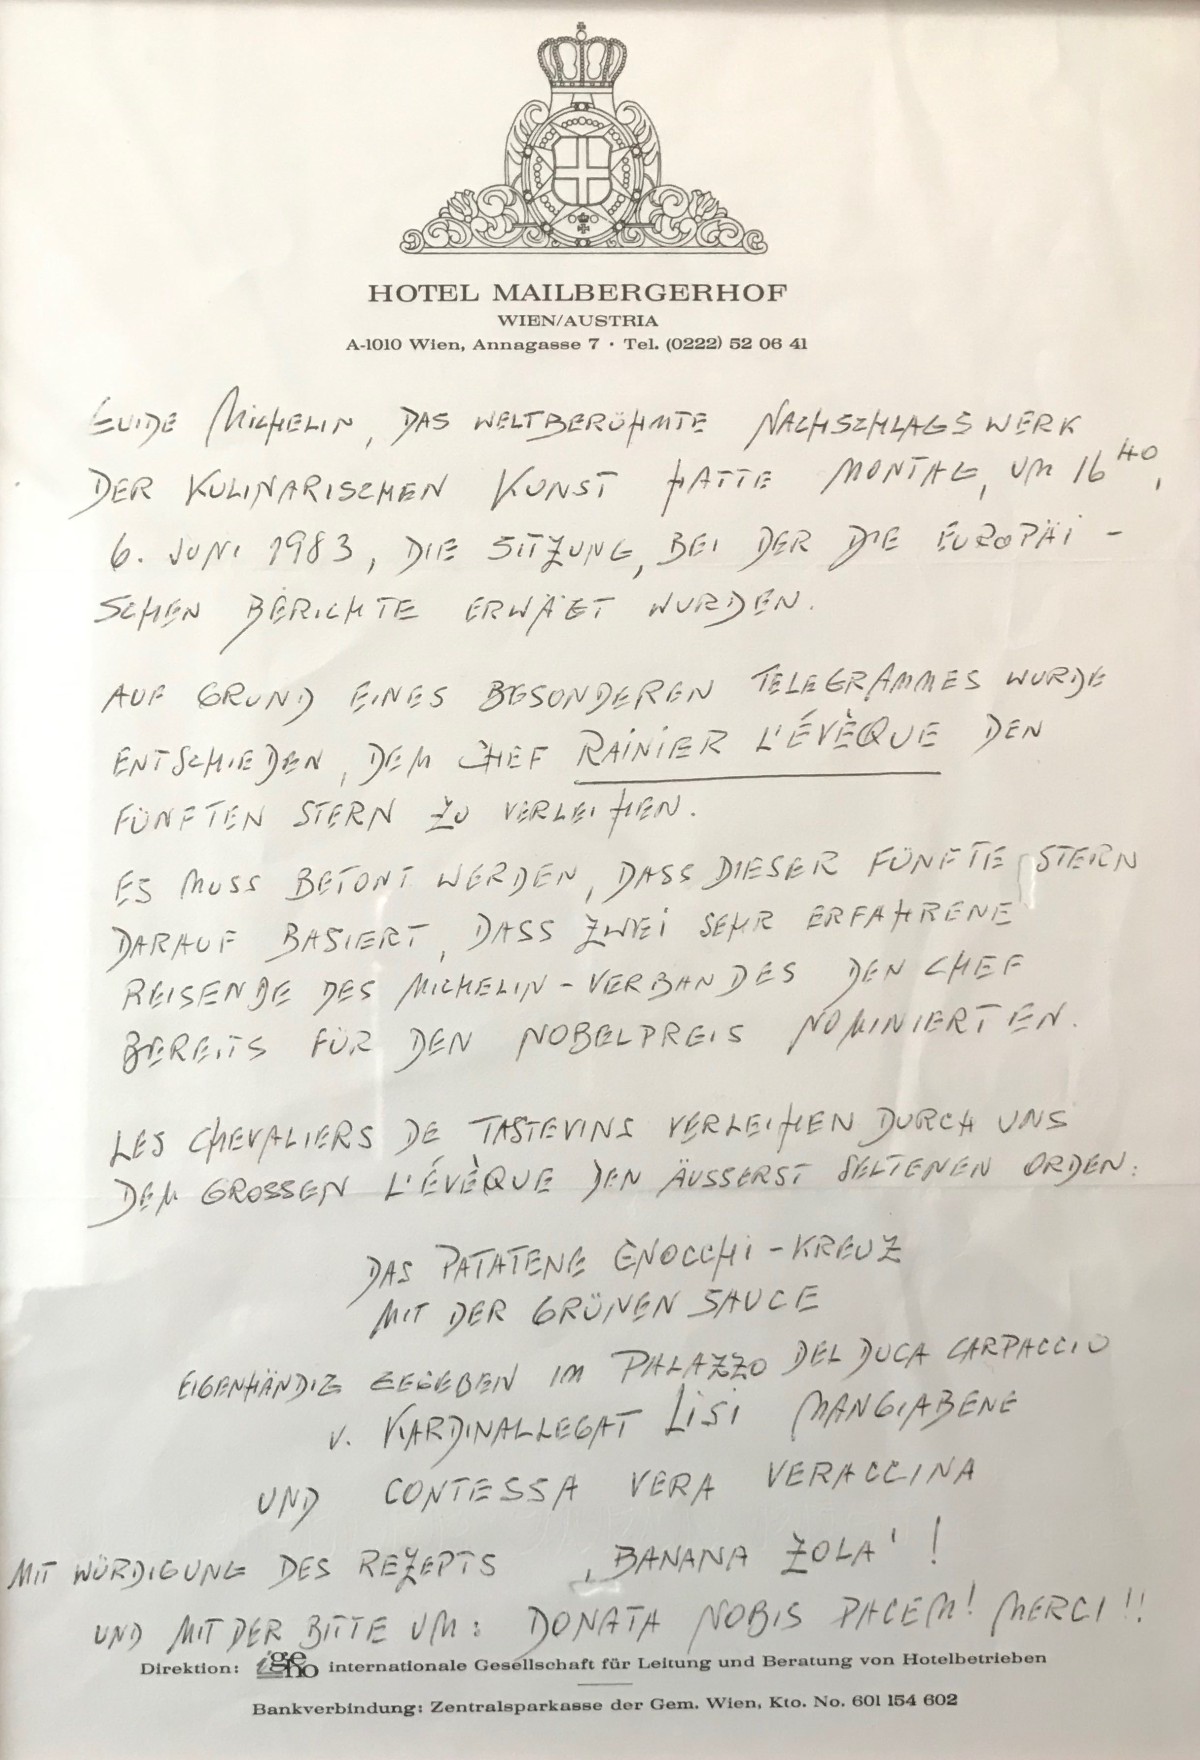 HOTEL MAILBERGERHOF
WIEN/AUSTRIA
A-1010 Wien, Annagasse 7 · Tel. (0222) 52 06 41
GUIDE MICHELIN, DAS WELTBERÜHMTE NACHSCHLAGSWERK
DER KULINARISCHEN KUNST HATTE MONTAG, UM 16 40,
6. JUNI 1983, DIE SITZUNG, BEI DER DIE EUROPÄI-
SCHEN BERICHTE ERWÄGT WURDEN.
AUF GRUND EINES BESONDEREN TELEGRAMMES WURDE
ENTSCHIEDEN, DEM CHEF RAINIER L'ÉVÈQUE DEN
FÜNFTEN STERN ZU VERLEIHEN.
ES MUSS BETONT WERDEN, DASS DIESER FÜNFTE STERN
DARAUF BASIERT, DASS ZWEI SEHR ERFAHRENE
REISENDE DES MICHELIN-VERBANDES DEN CHEF
BEREITS FÜR DEN NOBELPREIS NOMINIERTEN.
LES CHEVALIERS DE TASTEVINS VERLEIHEN DURCH UNS
DEM GROSSEN L'ÉVÈQUE DEN ÄUSSERST SELTENEN ORDEN:
DAS PATATENE GNOCCHI-KREUZ
MIT DER GRÜNEN SAUCE
EIGENHÄNDIG GEGEBEN IM PALAZZO DEL DUCA CARPACCIO
v. KARDINALLEGAT LISI MANGIABENE
UND CONTESSA VERA VERACCINA
MIT WÜRDIGUNG DES REZEPTS ‚BANANA ZOLA' !
UND MIT DER BITTE UM: DONATA NOBIS PACEM! MERCI!!
Direktion: igeho internationale Gesellschaft für Leitung und Beratung von Hotelbetrieben
Bankverbindung: Zentralsparkasse der Gem. Wien, Kto. No. 601 154 602